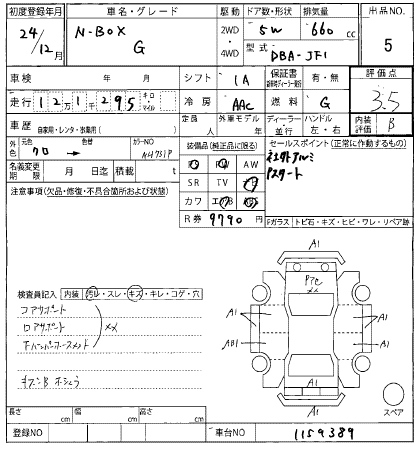 初度登録年月 車名・グレード 駆動 ドア数・形状 排気量 出品NO.
24/12月 N-BOX G 2WD・4WD 5W 660 cc 5
型式 DBA-JF1
車検 年 月 シフト IA 保証書 有・無 評価点
走行 12万1千295 キロ・マイル 冷房 AAC 燃料 G 3.5
車歴 自家用・レンタ・営業用( ) 定員 人 外車モデル 年 ディーラー・並行 ハンドル 左・右 内装評価 B
外色 元色 クロ 色替 カラーNO NH731P 装備品(純正品に限る) セールスポイント(正常に作動するもの)
名義変更期限 月 日迄 積載 t PS PW AW 社外アルミ
注意事項(欠品・修復・不具合箇所および状態) SR TV ナビ Pスタート
カワ エアB
R券 9790 円 Fガラス トビ石・キズ・ヒビ・ワレ・リペア跡
検査員記入 内装 汚レ・スレ・キズ・キレ・コゲ・穴
コアサポート
ロアサポート XX
A1
A1
A1
AB1
A1
A1
A1
A1
スペア
長さ cm 幅 cm 高さ cm
登録NO 車台NO 1159389